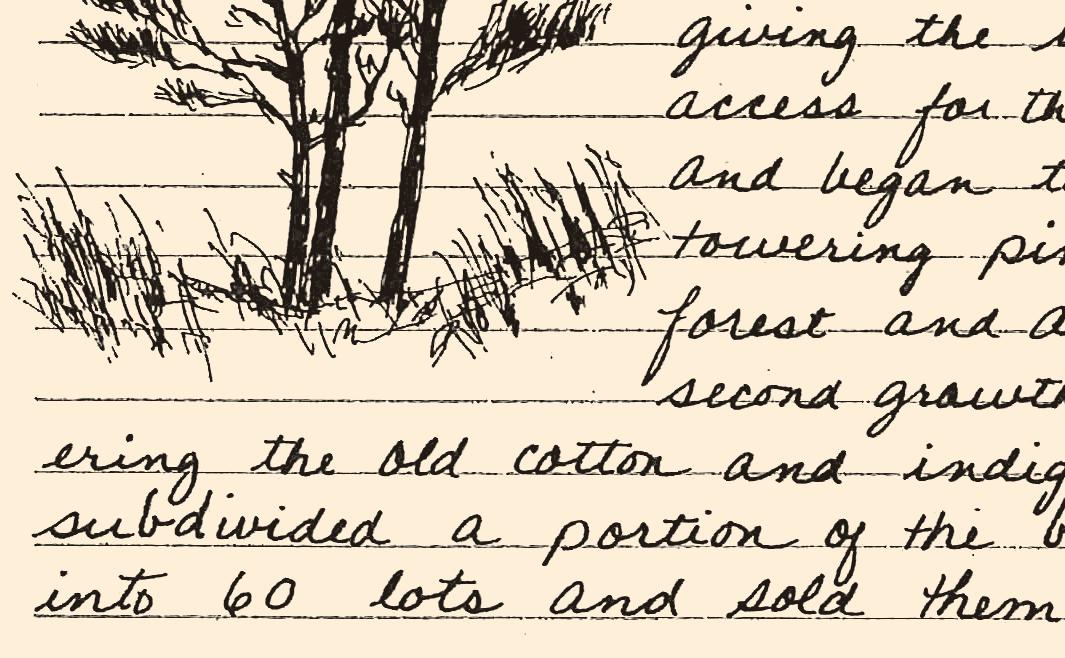 giving the
access for th
and began t
towering pin
forest and a
second growth
ering the old cotton and indig
subdivided a portion of the b
into 60 lots and sold them